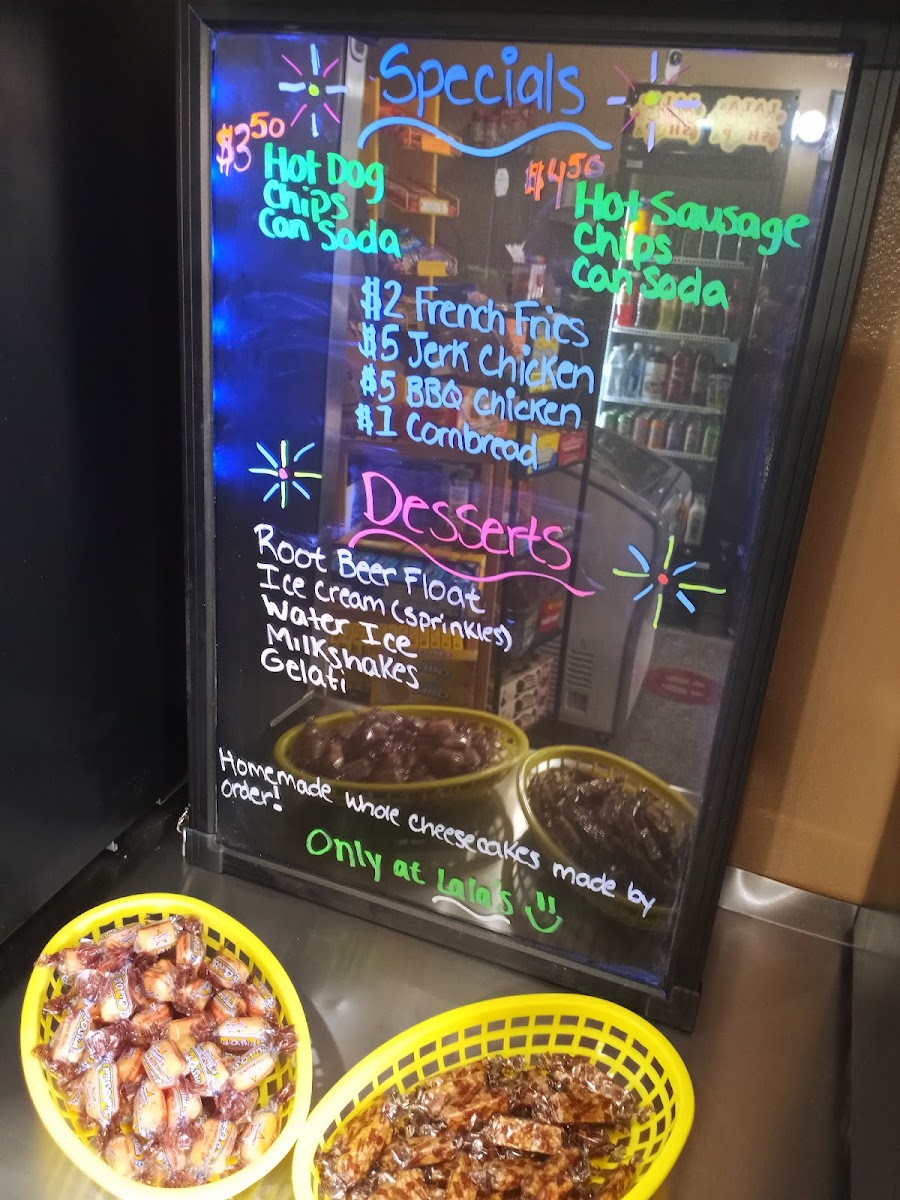 Specials
$3 50
Hot Dog
Chips
Can Soda
$4 50
Hot Sausage
Chips
Can Soda
$2 French Fries
$5 Jerk Chicken
$5 BBQ Chicken
$1 Cornbread
Desserts
Root Beer Float
Ice Cream (Sprinkles)
Water Ice
Milkshakes
Gelati
Homemade whole cheesecakes made by
order!
Only at Lala's